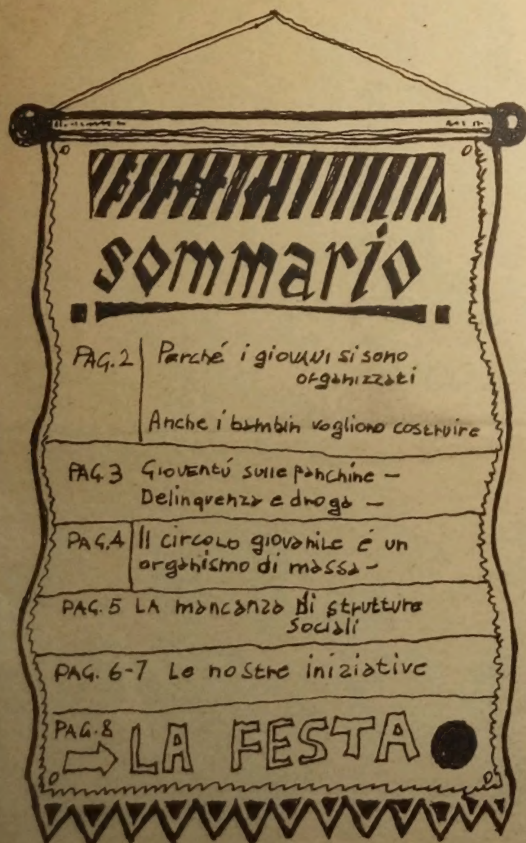 sommario
PAG. 2 Perché i giovani si sono
organizzati
Anche i bambin vogliono costruire
PAG. 3 Gioventú sulle panchine –
Delinquenza e droga –
PAG. 4 Il circolo giovanile é un
organismo di massa –
PAG. 5 LA mancanza di strutture
sociali
PAG. 6-7 Le nostre iniziative
PAG. 8 LA FESTA